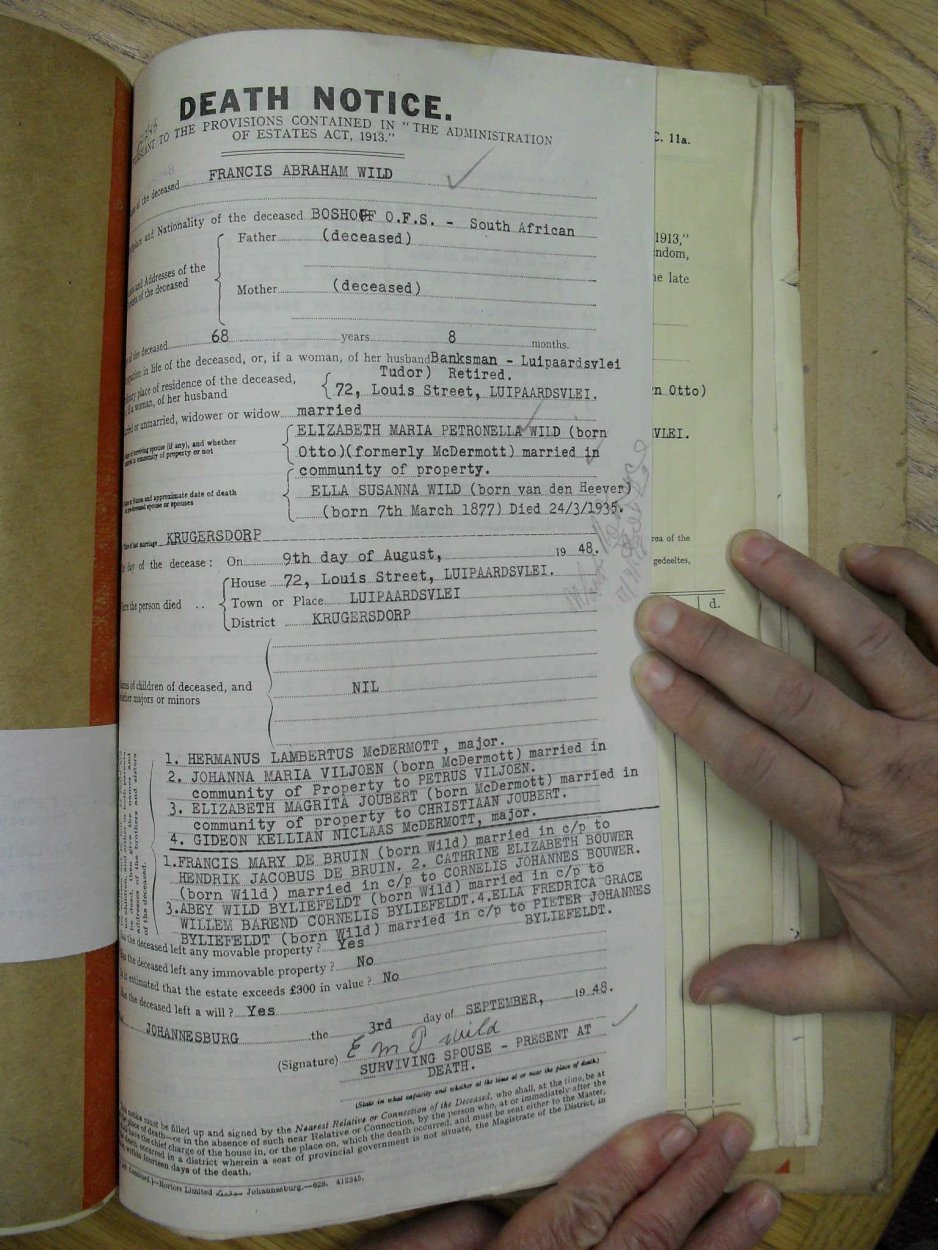 DEATH NOTICE.
TO THE PROVISIONS CONTAINED IN "THE ADMINISTRATION
OF ESTATES ACT, 1913."
of the deceased FRANCIS ABRAHAM WILD
and Nationality of the deceased BOSHOFF O.F.S. - South African
Father (deceased)
and Addresses of the
of the deceased
Mother (deceased)
of the deceased 68 years 8 months.
in life of the deceased, or, if a woman, of her husband Banksman - Luipaardsvlei
Tudor) Retired.
place of residence of the deceased,
if a woman, of her husband
72, Louis Street, LUIPAARDSVLEI.
or unmarried, widower or widow married
surviving spouse (if any), and whether
in community of property or not
ELIZABETH MARIA PETRONELLA WILD (born
Otto)(formerly McDermott) married in
community of property.
Names and approximate date of death
spouse or spouses
ELLA SUSANNA WILD (born van den Heever)
(born 7th March 1877) Died 24/3/1935.
Place of last marriage KRUGERSDORP
day of the decease: On 9th day of August, 1948.
the person died ..
House 72, Louis Street, LUIPAARDSVLEI.
Town or Place LUIPAARDSVLEI
District KRUGERSDORP
of children of deceased, and
majors or minors
NIL
1. HERMANUS LAMBERTUS McDERMOTT, major.
2. JOHANNA MARIA VILJOEN (born McDermott) married in
community of Property to PETRUS VILJOEN.
3. ELIZABETH MAGRITA JOUBERT (born McDermott) married in
community of property to CHRISTIAAN JOUBERT.
4. GIDEON KELLIAN NICLAAS McDERMOTT, major.
1.FRANCIS MARY DE BRUIN (born Wild) married in c/p to
HENDRIK JACOBUS DE BRUIN. 2. CATHRINE ELIZABETH BOUWER
(born Wild) married in c/p to CORNELIS JOHANNES BOUWER.
3.ABEY WILD BYLIEFELDT (born Wild) married in c/p to
WILLEM BAREND CORNELIS BYLIEFELDT.4.ELLA FREDRICA GRACE
BYLIEFELDT (born Wild) married in c/p to PIETER JOHANNES
BYLIEFELDT.
the deceased left any movable property? Yes
the deceased left any immovable property? No
estimated that the estate exceeds £300 in value? No
the deceased left a will? Yes
JOHANNESBURG the 3rd day of SEPTEMBER, 1948.
(Signature) E M P Wild
SURVIVING SPOUSE - PRESENT AT
DEATH.
(State in what capacity and whether at the time at or near the place of death)
notice must be filled up and signed by the Nearest Relative or Connection of the Deceased, who shall, at the time, be at
place of death—or in the absence of such near Relative or Connection, by the person who, at or immediately after the
have the chief charge of the house in, or the place on, which the death occurred, and must be sent either to the Master,
death occurred in a district wherein a seat of provincial government is not situate, the Magistrate of the District, in
within fourteen days of the death.
Hortors Limited Johannesburg.—626. 412345.
C. 11a.
1913,"
he late
n Otto)
VLEI.
rea of the
gedeeltes,
d.